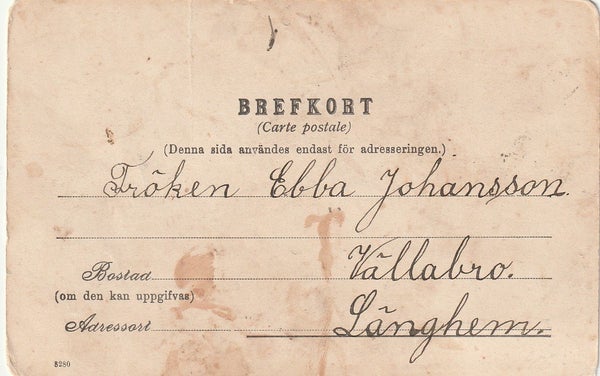 BREFKORT
(Carte postale)
(Denna sida användes endast för adresseringen.)
Fröken Ebba Johansson.
Vällabro.
Bostad
(om den kan uppgifvas)
Länghem.
Adressort
5280